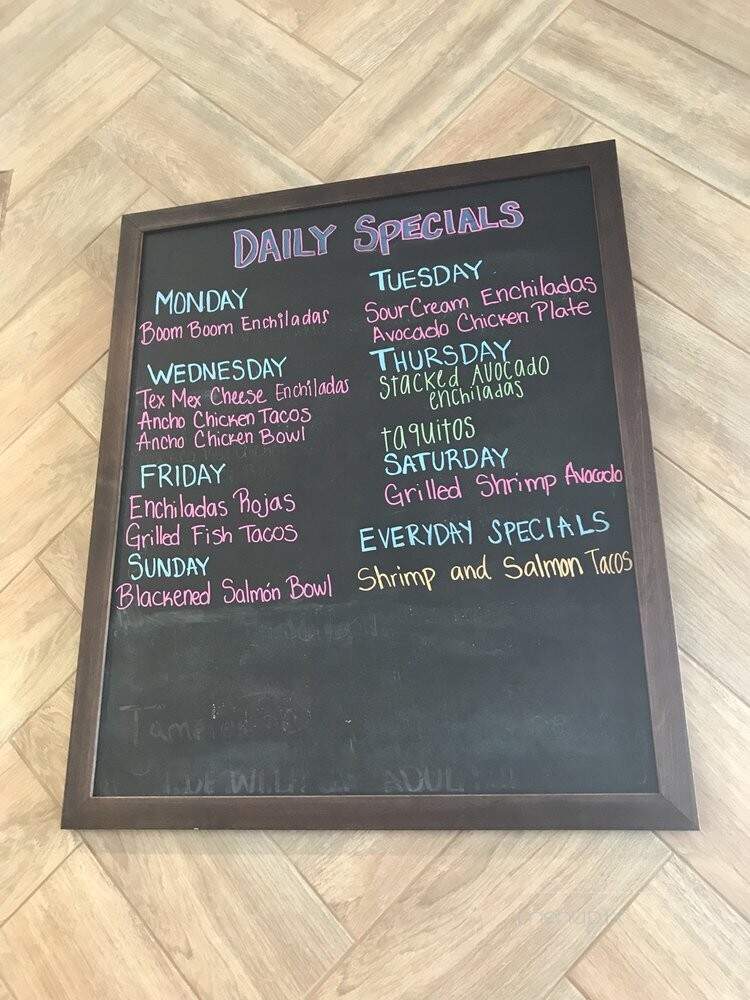 DAILY SPECIALS
MONDAY
Boom Boom Enchiladas
TUESDAY
Sour Cream Enchiladas
Avocado Chicken Plate
WEDNESDAY
Tex Mex Cheese Enchiladas
Ancho Chicken Tacos
Ancho Chicken Bowl
THURSDAY
Stacked Avocado
enchiladas
taquitos
FRIDAY
Enchiladas Rojas
Grilled Fish Tacos
SATURDAY
Grilled Shrimp Avocado
SUNDAY
Blackened Salmón Bowl
EVERYDAY SPECIALS
Shrimp and Salmon Tacos